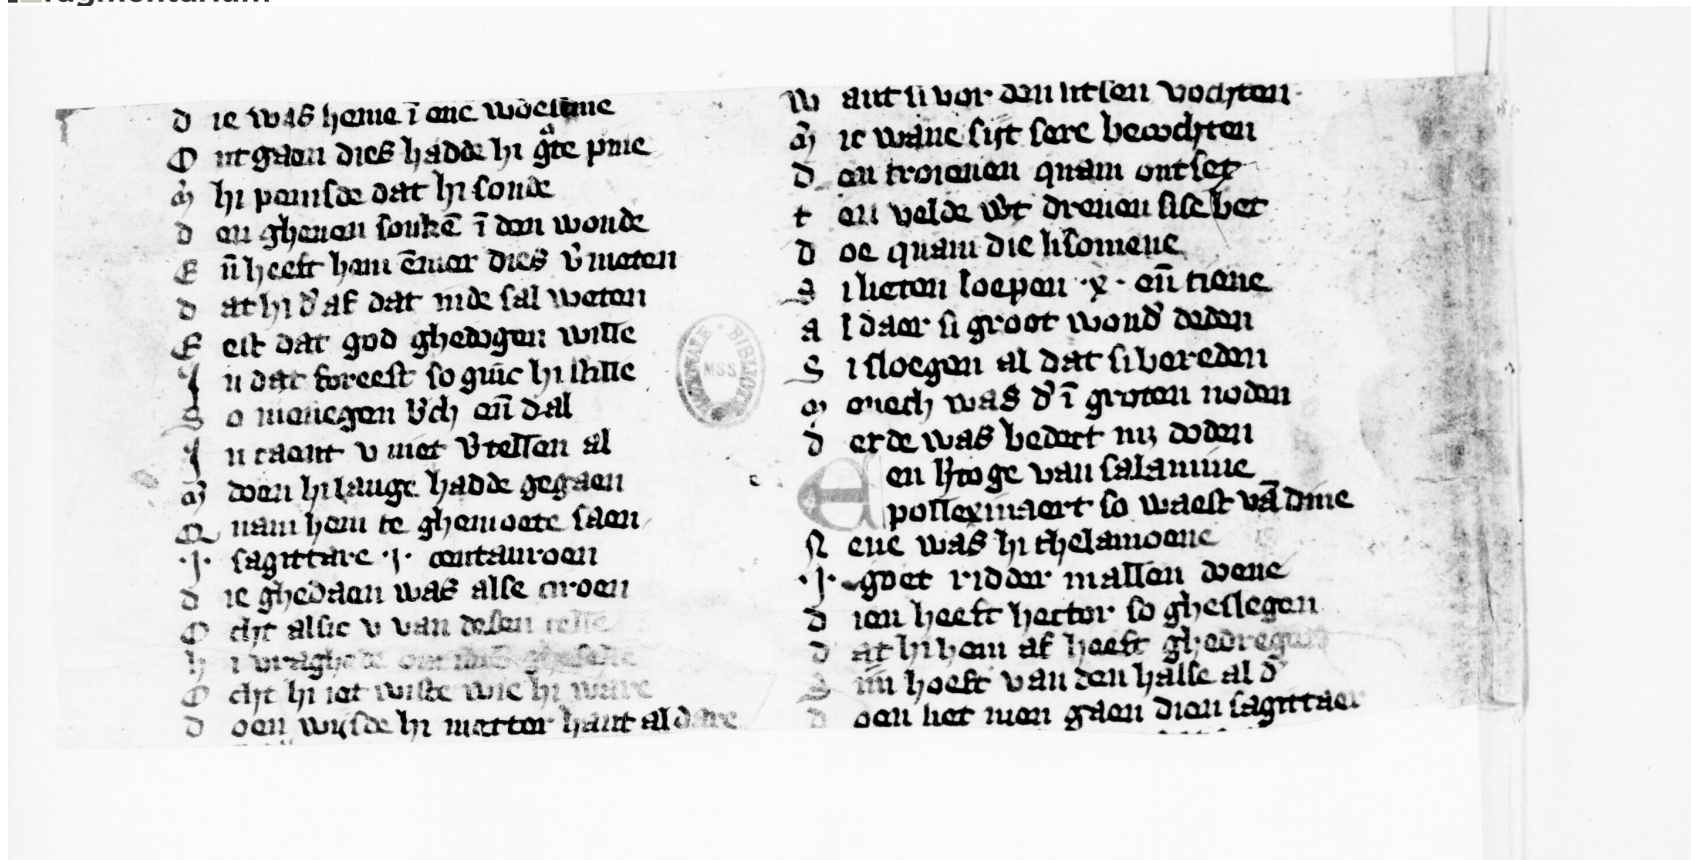 d ie was heme ī ene woestine
O nt gaen dies hadde hi gͣte pine
M̄ hi peinsde dat hi soude
d en ghenen soukē ī den woude
E n̄ heeft hem ēmer dies v̓meten
d at hi d̓ af dat inde sal weten
E est dat god ghedogen wille
J n dat foreest so ginc hi stille
S o menegen b̓ch en̄ dal
J n caent v niet v̓tellen al
M̄ doen hi lange hadde gegaen
Q uam hem te ghemoete saen
·J· sagittare ·j· centauroen
d ie ghedaen was alse
O cht alsic v van desen telle
h i vraghede om
O cht hi iet wiste wie hi ware
d oen wijsde hi metter hant al dare
W ant si vor den utsen vochten
M̄ ic wane sijt sere becochten
d en troienen quam ontset
t en velde wt dreuen sise bet
d oe quam die
S i lieten loepen ·x· en̄ tiene
a l daer si groot wond̓ deden
S i sloegen al dat si bereden
M enech was d̓ ī groten noden
d erde was bedect mʒ doden
en h̓toge van salamine
A pollexinaert so waest vā dine
N eue was hi thelamoene
·J· goet ridder mallen doene
d ien heeft hector so gheslegen
d at hi hem af heeft ghedregen
S im hoeft van den halse al d̓
d oen liet men gaen dien sagittaer
BIBLIOT
MSS